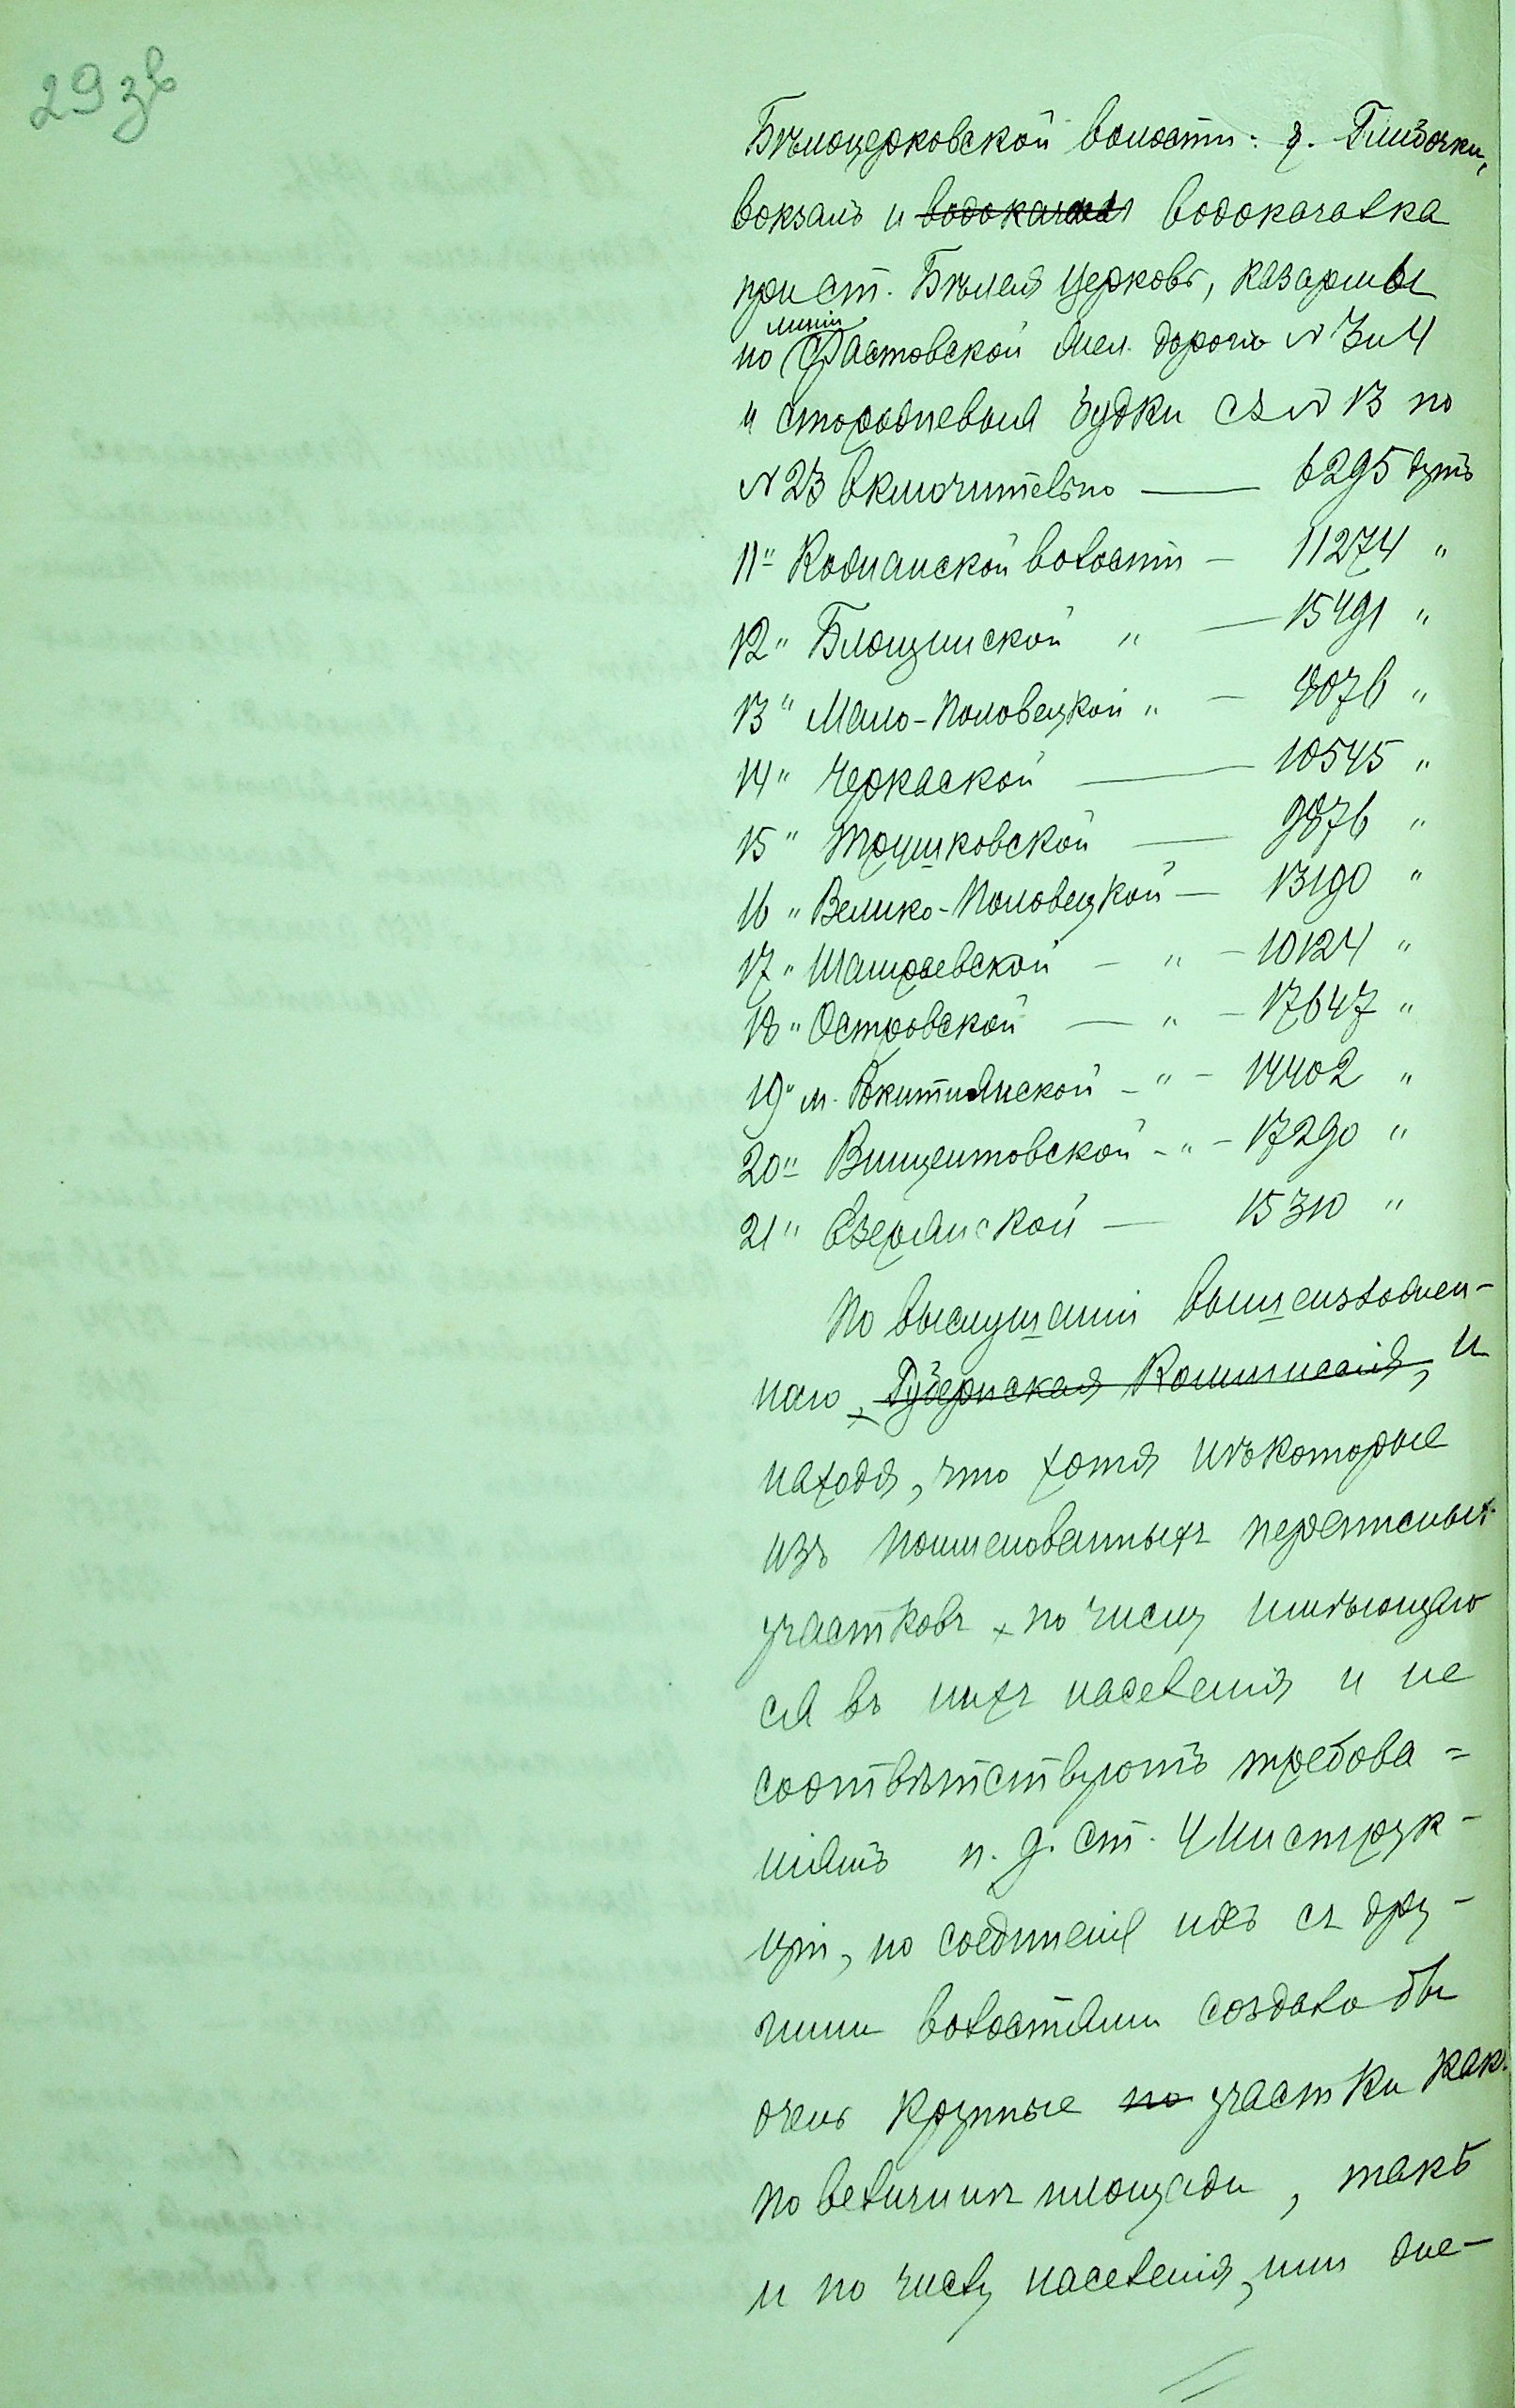 29 зв
Бѣлоцерковской волости: д. Глыбочки,
вокзалъ и водокачка водокачалка
при ст. Бѣлая Церковь, казармы
по линіи Фастовской жел. дороги № 3 и 4
и сторожевыя будки съ № 13 по
№ 23 включительно — 6295 душъ
11" Кожанской волости — 11274 "
12" Блощинской " — 15491 "
13" Мало-Половецкой " — 9076 "
14" Черкаской — 10545 "
15" Трушковской — 9876 "
16" Велико-Половецкой — 13190 "
17" Шамраевской — " — 10124 "
18" Островской — " — 17647 "
19" м. Рокитнянской — " — 14402 "
20" Винцентовской — " — 17290 "
21" Езерянской — 15310 "
По выслушаніи вышеизложен-
наго, Губернская Коммиссія, и
находя, что хотя нѣкоторые
изъ поименованныхъ переписныхъ
участковъ по числу имѣющаго
ся въ нихъ населенія и не
соотвѣтствуютъ требова=
ніямъ п. д. ст. 4 Инструк-
ціи, но соединеніе ихъ съ дру-
гими волостями создало бы
очень крупные по участки какъ
по величинѣ площади, такъ
и по числу населенія, или же-